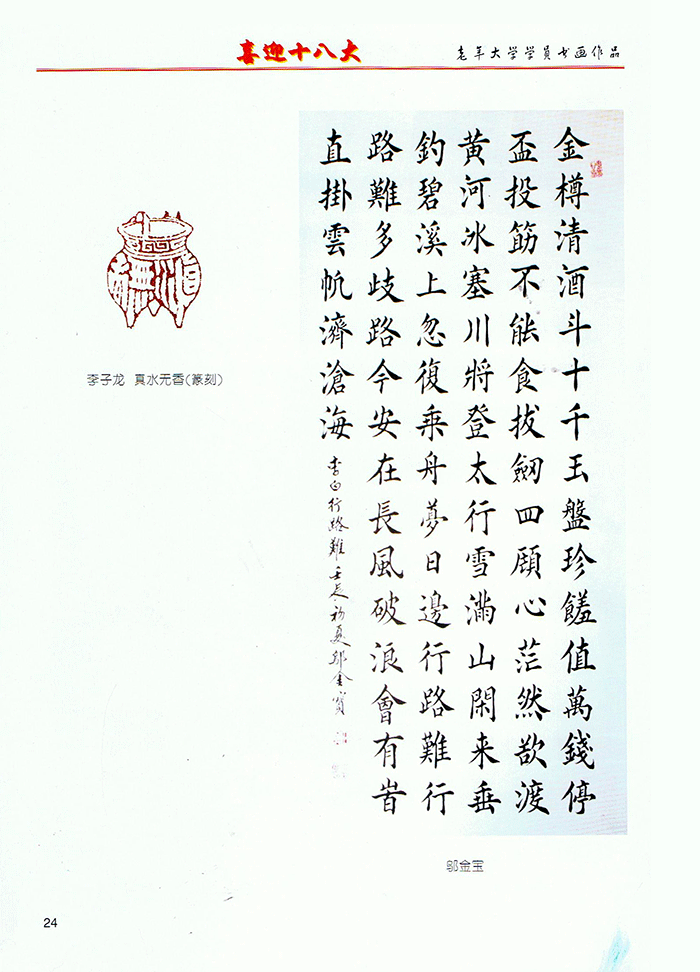 喜迎十八大
老年大学学员书画作品
金樽清酒斗十千玉盤珍饈值萬錢停
盃投筯不能食拔劒四顧心茫然欲渡
黄河冰塞川將登太行雪滿山閑来垂
釣碧溪上忽復乘舟夢日邊行路難行
路難多歧路今安在長風破浪會有旹
直掛雲帆濟滄海
李白行路難壬辰初夏邬金寳
李子龙 真水无香(篆刻)
邬金宝
24